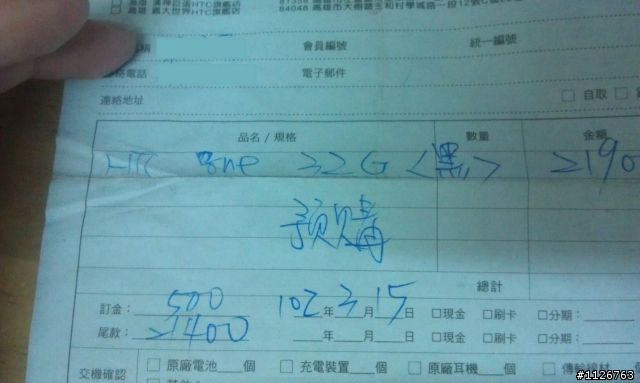 高雄 義大世界HTC旗艦店 84048 高雄市大樹區三和村學城路一段12號
會員編號 統一編號
絡電話 電子郵件
連絡地址 □自取
品名 / 規格 數量 金額
HTC one 32G <黑> 2190
預購
總計
訂金: 500 102年3月15日 □現金 □刷卡 □分期:
尾款: 21400 年 月 日 □現金 □刷卡 □分期:
交機確認 □原廠電池 個 □充電裝置 個 □原廠耳機 個 □傳輸線材
#1126763